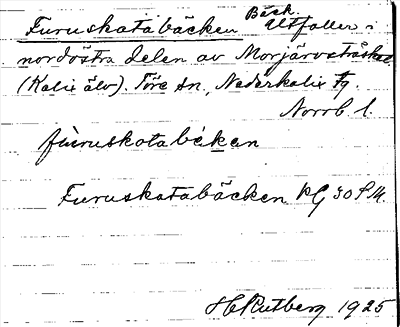 Furuskatabäcken Bäck. Utfaller i
nordöstra delen av Morjärvsträsket
(Kalix älv). Töre sn., Nederkalix tg.
Norrb. l.
fùruskotabékan
Furuskatabäcken
1925